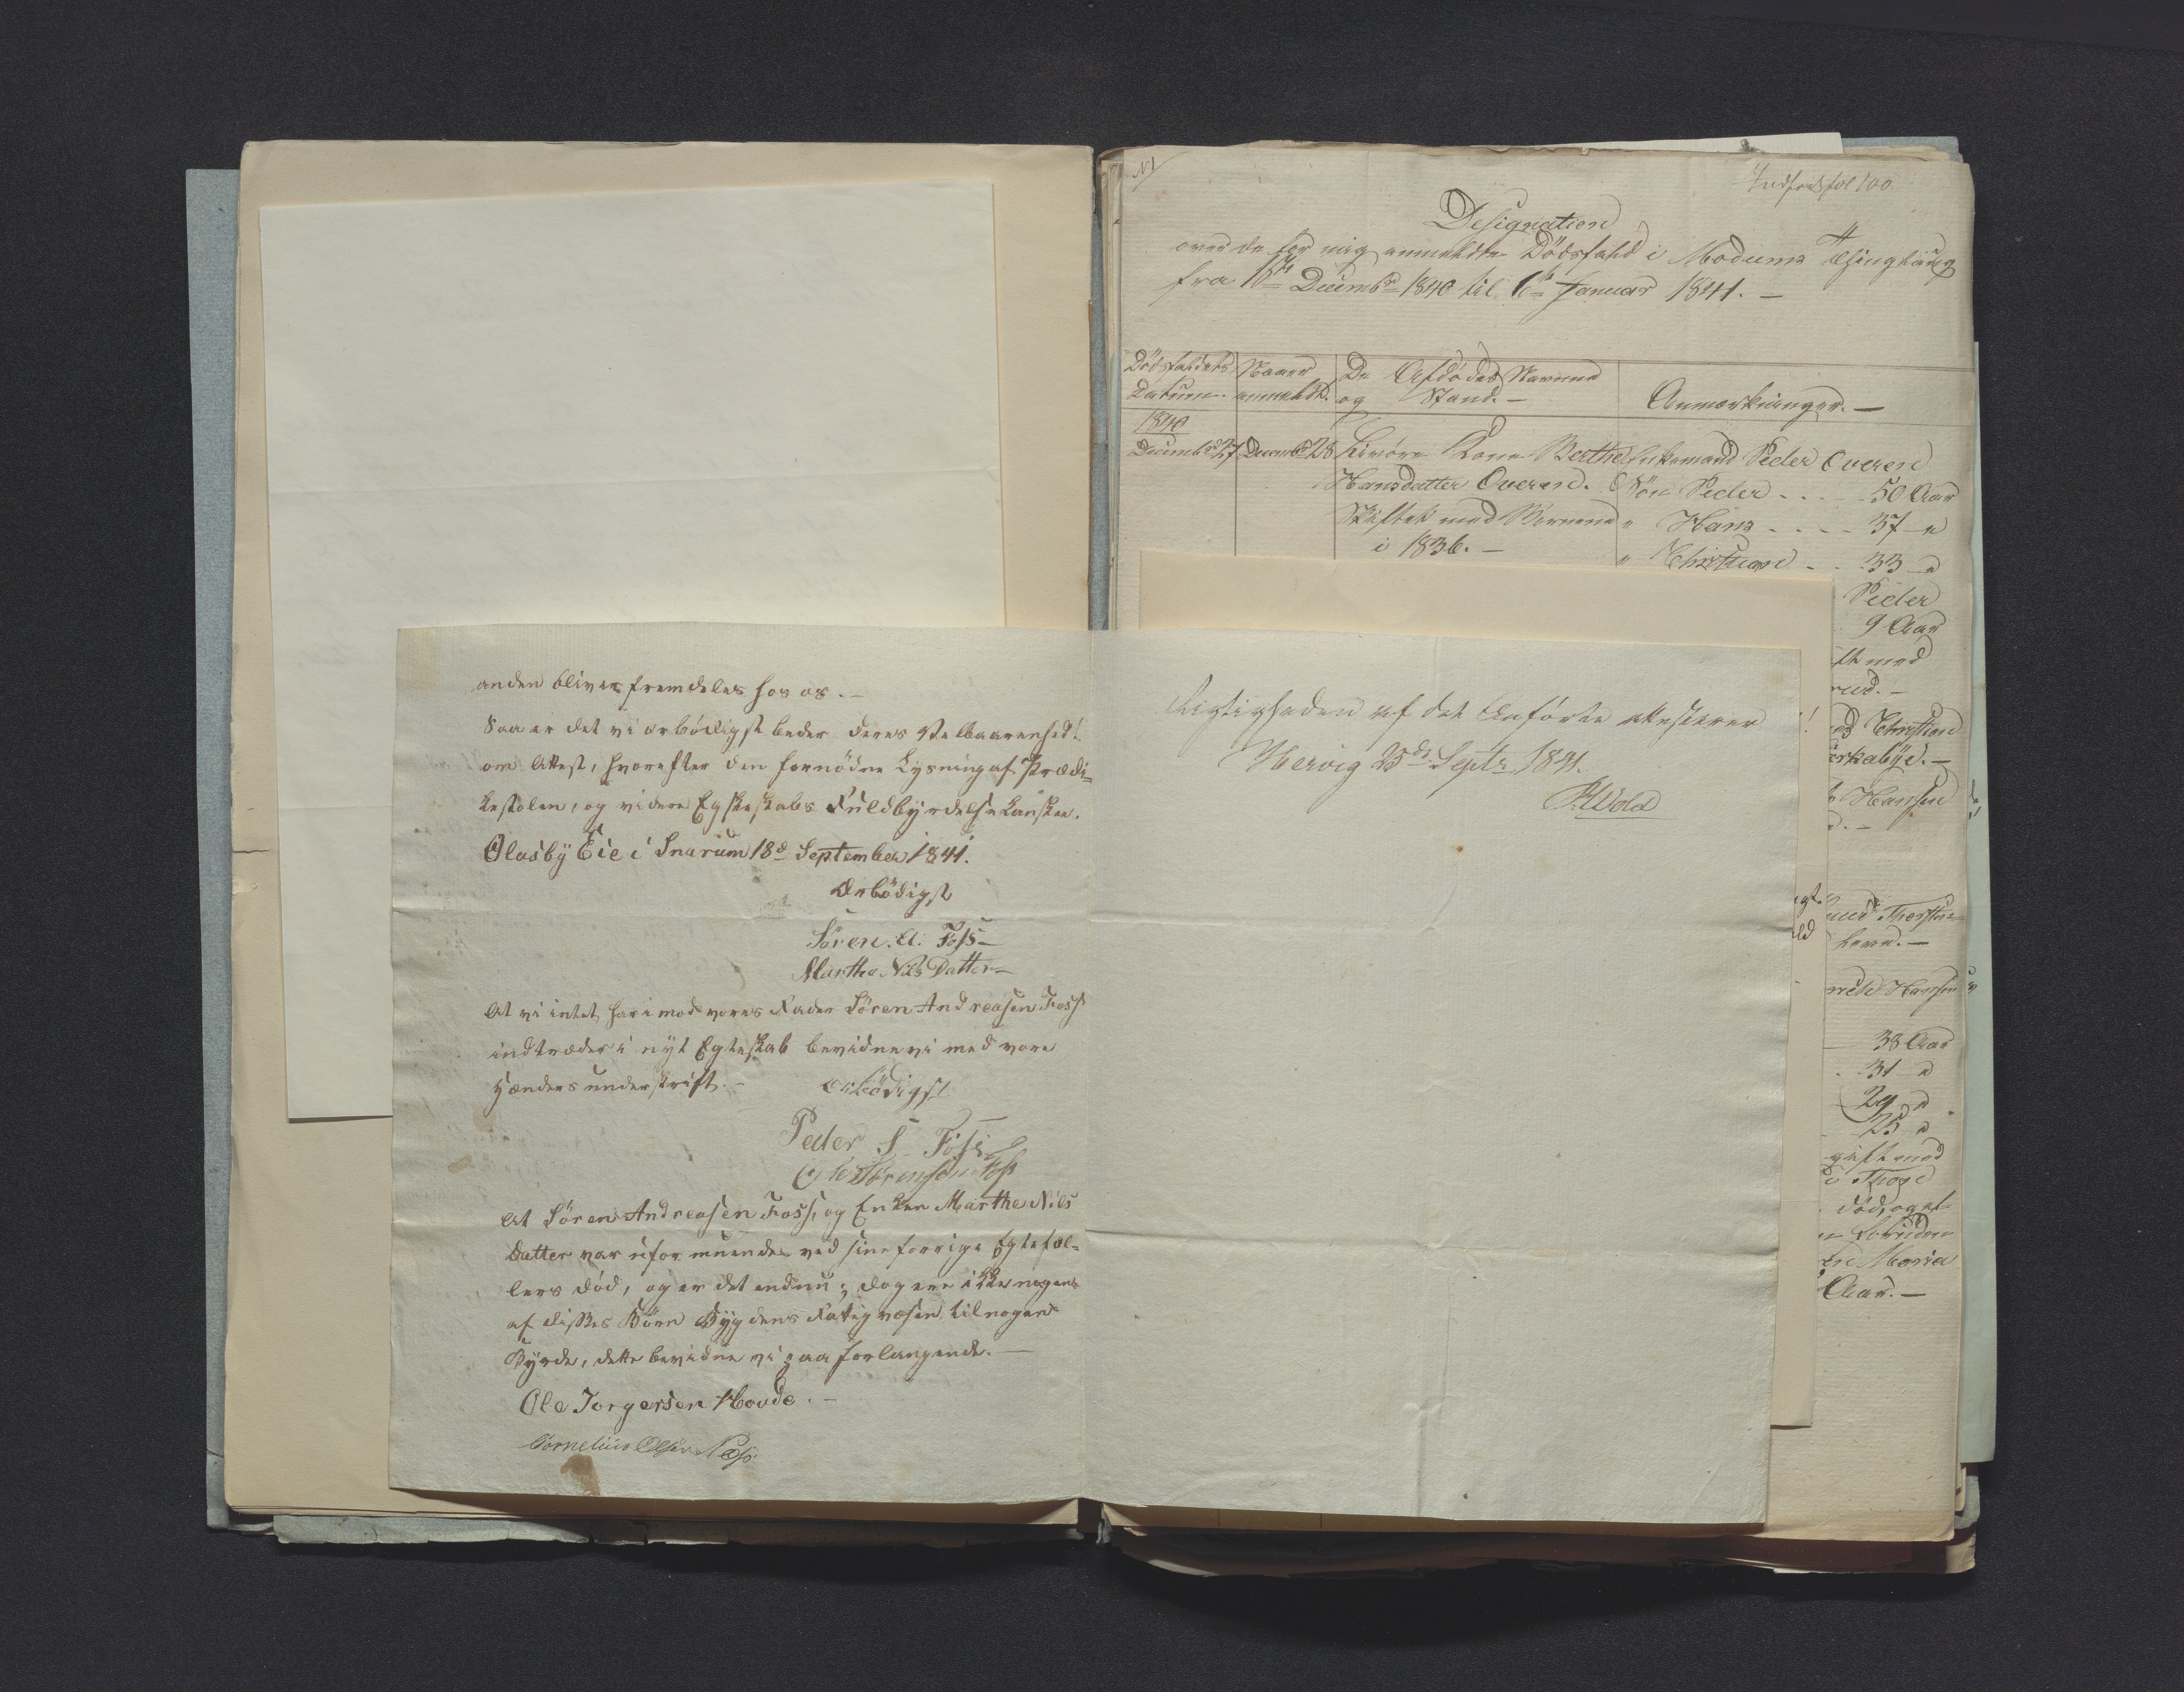 anden bliver fremdeles hos os.-
Saa er det vi ærbödigst beder deres Velbaarenhed!
om Attest, hvorefter den fornödne Lysning af Prædi=
kestolen, og videre Egteskabs Fuldbyrdelse kan skee.
Olasbÿ Eie i Snarum 18d September 1841.
Ærbödigst
Sören. A. Foss-
Marthe Nils Datter-
At vi intet har imod vores Fader Sören Andreasen Foss
indtræder i nÿt Egteskab bevidner vi med vore
Hænders underskrift.-
Ærbödigst
Peder S Foss
Ole Sörensen Foss
At Sören Andreasen Foss, og Enken Marthe Nils
Datter var uformuende ved sine forrige Egtefæl=
lers död, og er det endnu; dog ere ikke nogen
af disses Börn Bÿgdens Fattigvæsen til nogen
Bÿrde, dette bevidner vi paa forlangende.-
Ole Torgersen Hovde.-
Cornelius Olsen Næss
Rigtigheden af det Anförte attesterer
Hervig 23de Septr 1841.
Wold
N 1
fol 100.
Designation
over de for mig anmeldte Dödsfald i Modums Thinglaug
fra 16de Decembr 1840 til 6te Januar 1841.-
Dödsfaldets Datum.
Naar anmeldt.
De Afdödes Navne og Stand.-
Anmærkninger.-
1840
Decembr 27 Decembr 28 Kone Berthe Enkemand Peder Overen
Hansdatter Overen. Sön Peder - - - - 50 Aar
Skiftet med Börnene " Hans - - - - 37 "
i 1836.- " Christian - - 33 "
Peder
9 Aar
ft med
rud.-
Christian
bÿe.-
Hansen
Thorsten
Hansen
38 Aar
31 "
29 "
25 "
gift med
Thor
död, og ef-
Maria
Aar.-